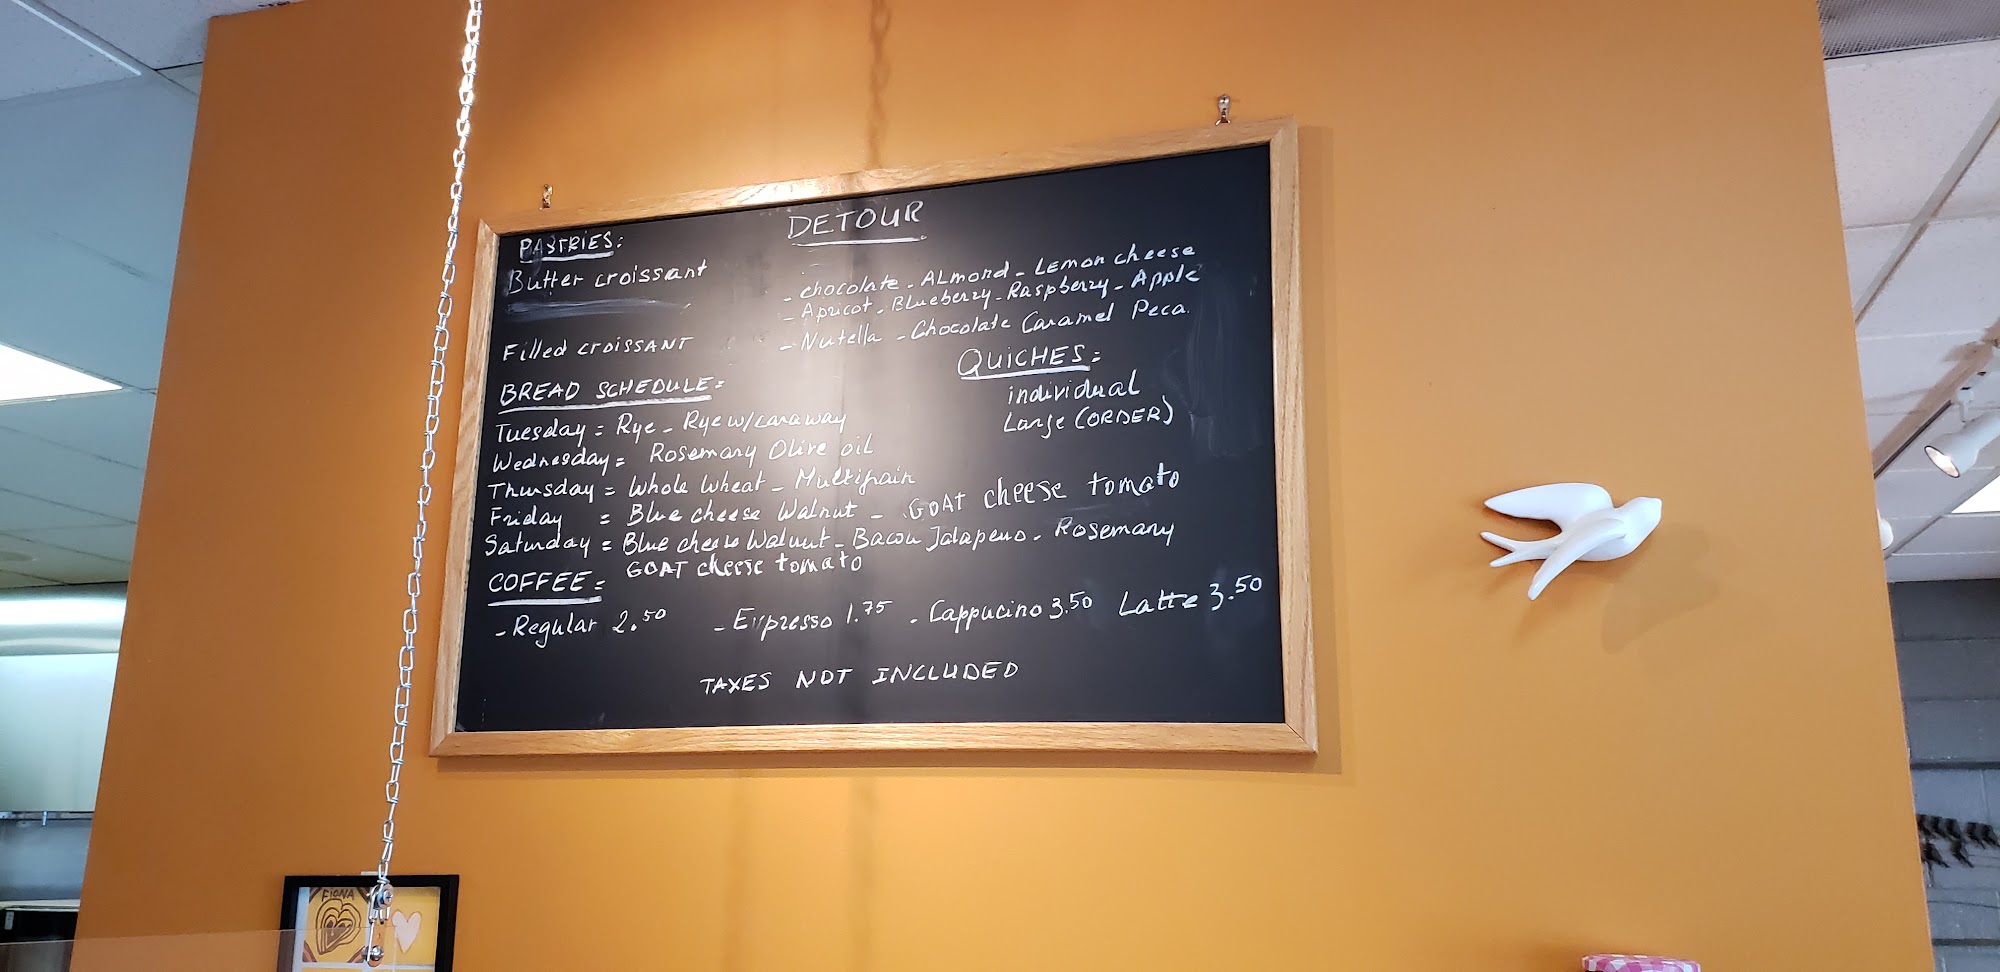 DETOUR
PASTRIES:
Butter croissant
- chocolate - ALmond - Lemon cheese
- Apricot - Blueberry - Raspberry - Apple
Filled croissant - Nutella - Chocolate Caramel Peca.
QUICHES:
individual
Large (ORDER)
BREAD SCHEDULE:
Tuesday = Rye - Rye w/caraway
Wednesday = Rosemary Olive oil
Thursday = Whole Wheat - Multigrain
Friday = Blue cheese Walnut - GOAT cheese tomato
Saturday = Blue cheese Walnut - Bacon Jalapeno - Rosemary
GOAT cheese tomato
COFFEE:
- Regular 2.50 - Espresso 1.75 - Cappucino 3.50 Latte 3.50
TAXES NOT INCLUDED
FIONA